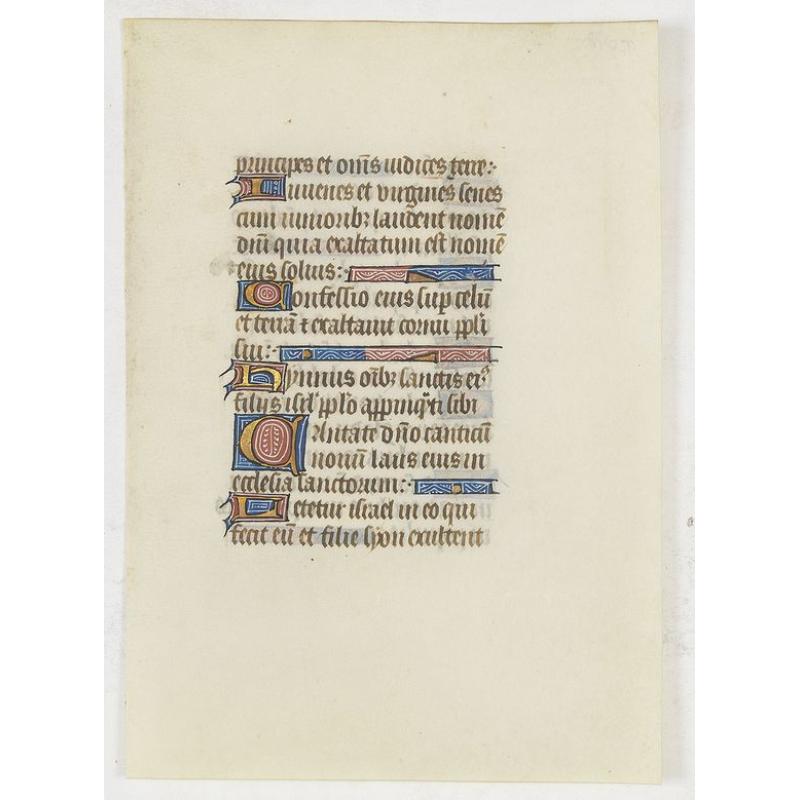 principes et om̄s iudices terre:·
Iuuenes et virgines senes
cum iunioribꝫ laudent nomē
dn̄i quia exaltatum est nomē
eius solius:·
Confessio eius sup celū
et terrā ⁊ exaltauit cornu ppl̄i
sui:·
Hymnus oībꝫ sanctis ei⁹
filijs isrl̄ ppl̄o appinq̄ti sibi
Cantate dn̄o canticū
nouū laus eius in
ecclesia sanctorum:·
Letetur israel in eo qui
fecit eū et filie syon exultent